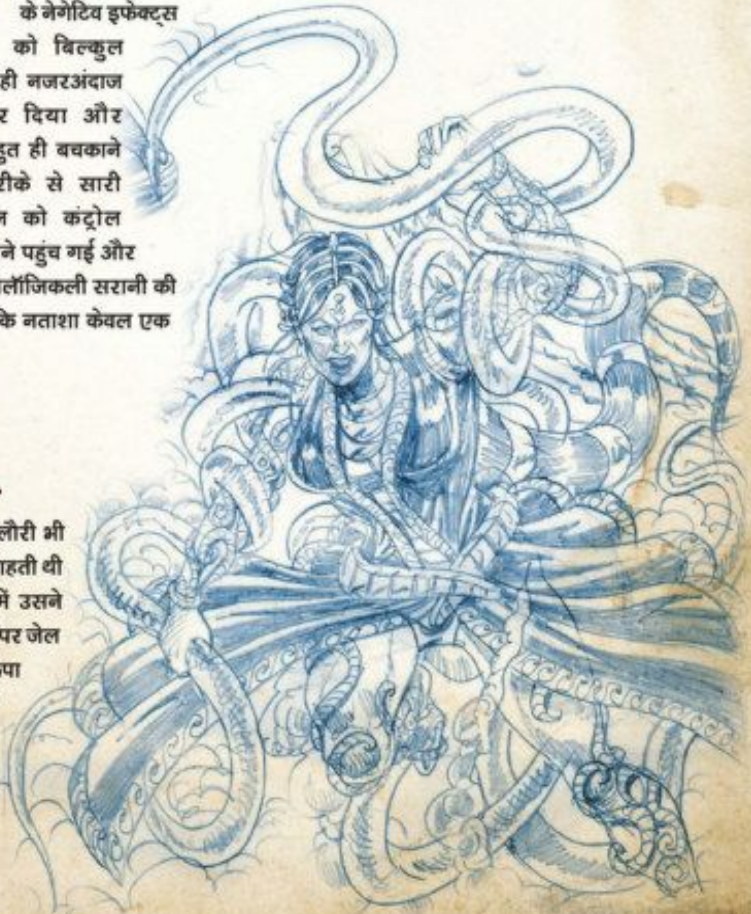 के नेगेटिव इफेक्ट्स
को बिल्कुल
ही नजरअंदाज
दिया और
ही बचकाने
से सारी
को कंट्रोल
पहुंच गई और
सरानी की
नताशा केवल एक
भी
थी
में उसने
पर जेल